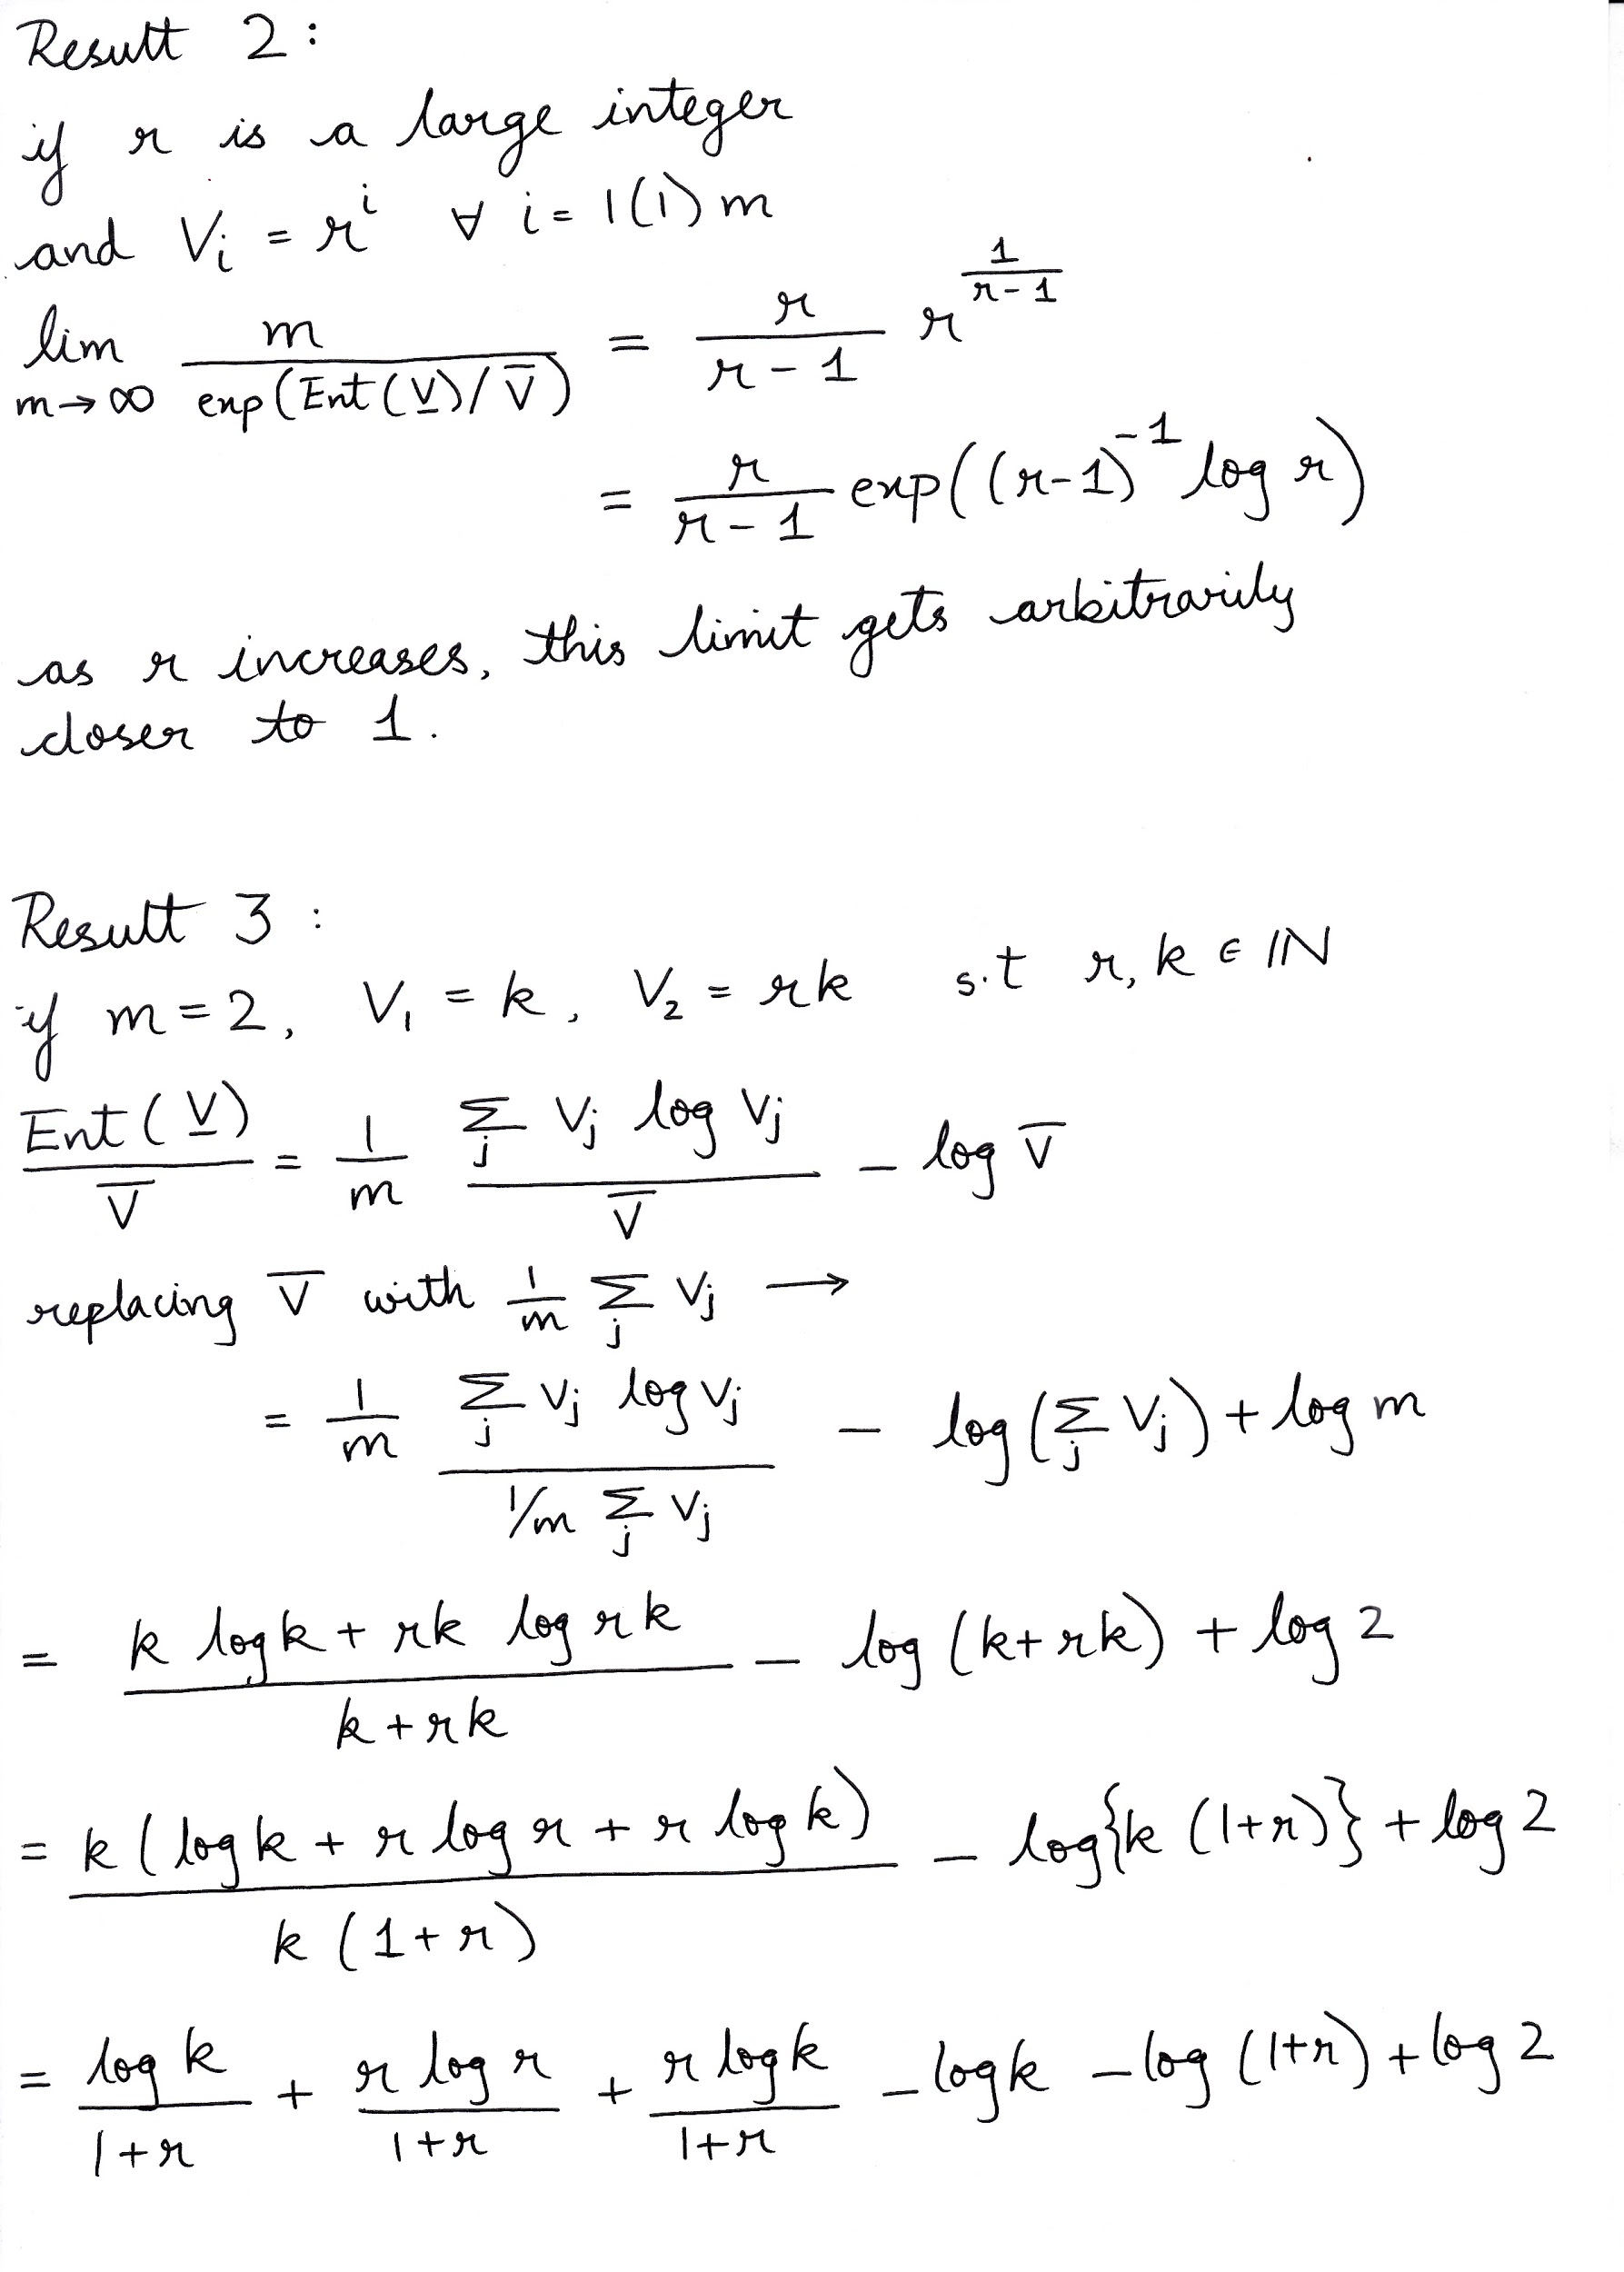 Result 2 :
if r is a large integer
and V_i = r^i ∀ i = 1(1) m
lim_{m→∞} m / exp(Ent(V̲)/V̅) = r/(r-1) r^{1/(r-1)}
= r/(r-1) exp((r-1)^{-1} log r)
as r increases, this limit gets arbitrarily
closer to 1.
Result 3 :
if m=2, V_1 = k, V_2 = rk s.t r, k ∈ IN
Ent(V̲)/V̅ = 1/m (Σ_j V_j log V_j)/V̅ - log V̅
replacing V̅ with 1/m Σ_j V_j →
= 1/m (Σ_j V_j log V_j)/(1/m Σ_j V_j) - log(Σ_j V_j) + log m
= (k log k + rk log rk)/(k+rk) - log (k+rk) + log 2
= k(log k + r log r + r log k)/(k(1+r)) - log{k (1+r)} + log 2
= log k/(1+r) + r log r/(1+r) + r log k/(1+r) - log k - log (1+r) + log 2